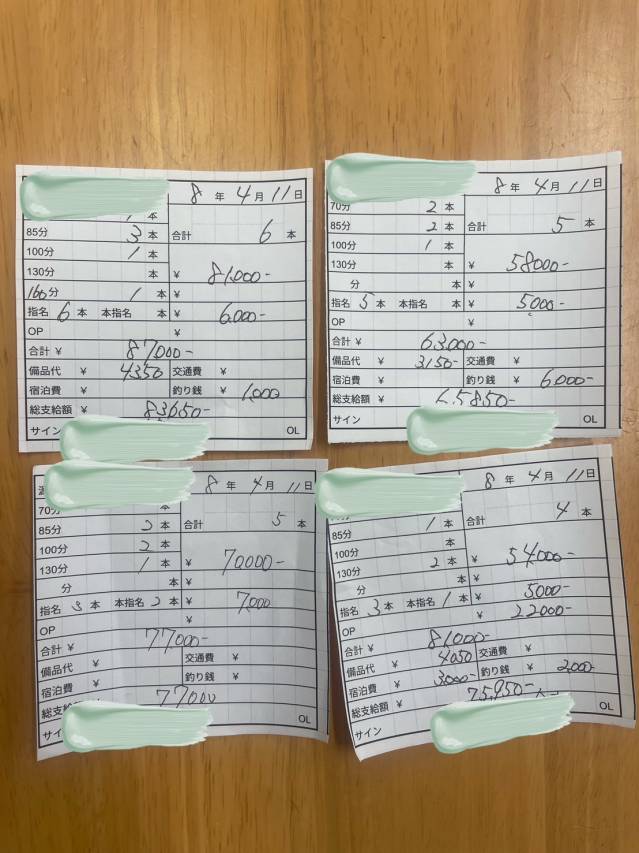 8 年 4 月 11 日
1 本
85分 3 本 合計 6 本
100分 1 本
130分 本 ¥ 81,000-
160分 1 本 ¥
指名 6 本 本指名 本 ¥ 6,000-
OP ¥
合計 ¥ 87,000-
備品代 ¥ 4350 交通費 ¥
宿泊費 ¥ 釣り銭 ¥ 1,000
総支給額 ¥ 83650-
サイン OL
8 年 4 月 11 日
70分 2 本
85分 2 本 合計 5 本
100分 1 本
130分 本 ¥ 58000-
分 本 ¥
指名 5 本 本指名 本 ¥ 5000-
OP ¥
合計 ¥ 63,000-
備品代 ¥ 3150- 交通費 ¥
宿泊費 ¥ 釣り銭 ¥ 6,000-
総支給額 ¥ 5850-
サイン OL
8 年 4 月 11 日
70分 本
85分 2 本 合計 5 本
100分 2 本
130分 1 本 ¥ 70000-
分 本 ¥
指名 3 本 本指名 2 本 ¥ 7,000
OP ¥
合計 ¥ 77,000-
備品代 ¥ 交通費 ¥
宿泊費 ¥ 釣り銭 ¥
総支給 77000
サイ OL
8 年 4 月 11 日
本
85分 1 本 合計 4 本
100分 本
130分 2 本 ¥ 54,000-
分 本 ¥
指名 3 本 本指名 1 本 ¥ 5000-
OP ¥ 22000-
合計 ¥ 81,000-
備品代 ¥ 4050 交通費 ¥
宿泊費 ¥ 3,000- 釣り銭 ¥ 2,000-
総支給額 ¥ 75,950-
サイン OL